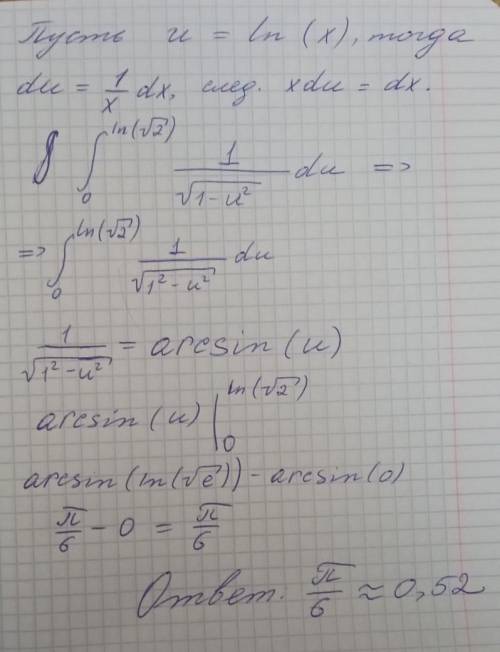 Пусть u = ln (x), тогда
du = 1/x dx, след. x du = dx.
∫₀^ln(√2) 1/√(1-u²) du =>
=> ∫₀^ln(√2) 1/√(1²-u²) du
1/√(1²-u²) = arcsin (u)
arcsin (u) |₀^ln(√2)
arcsin (ln(√e)) - arcsin (0)
π/6 - 0 = π/6
Ответ. π/6 ≈ 0,52